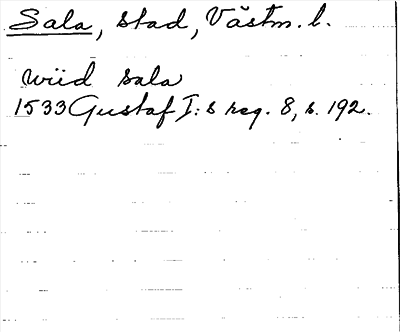 Sala, stad, Västm. l.
wiid sala
1533 Gustaf I:s reg. 8, s. 192.